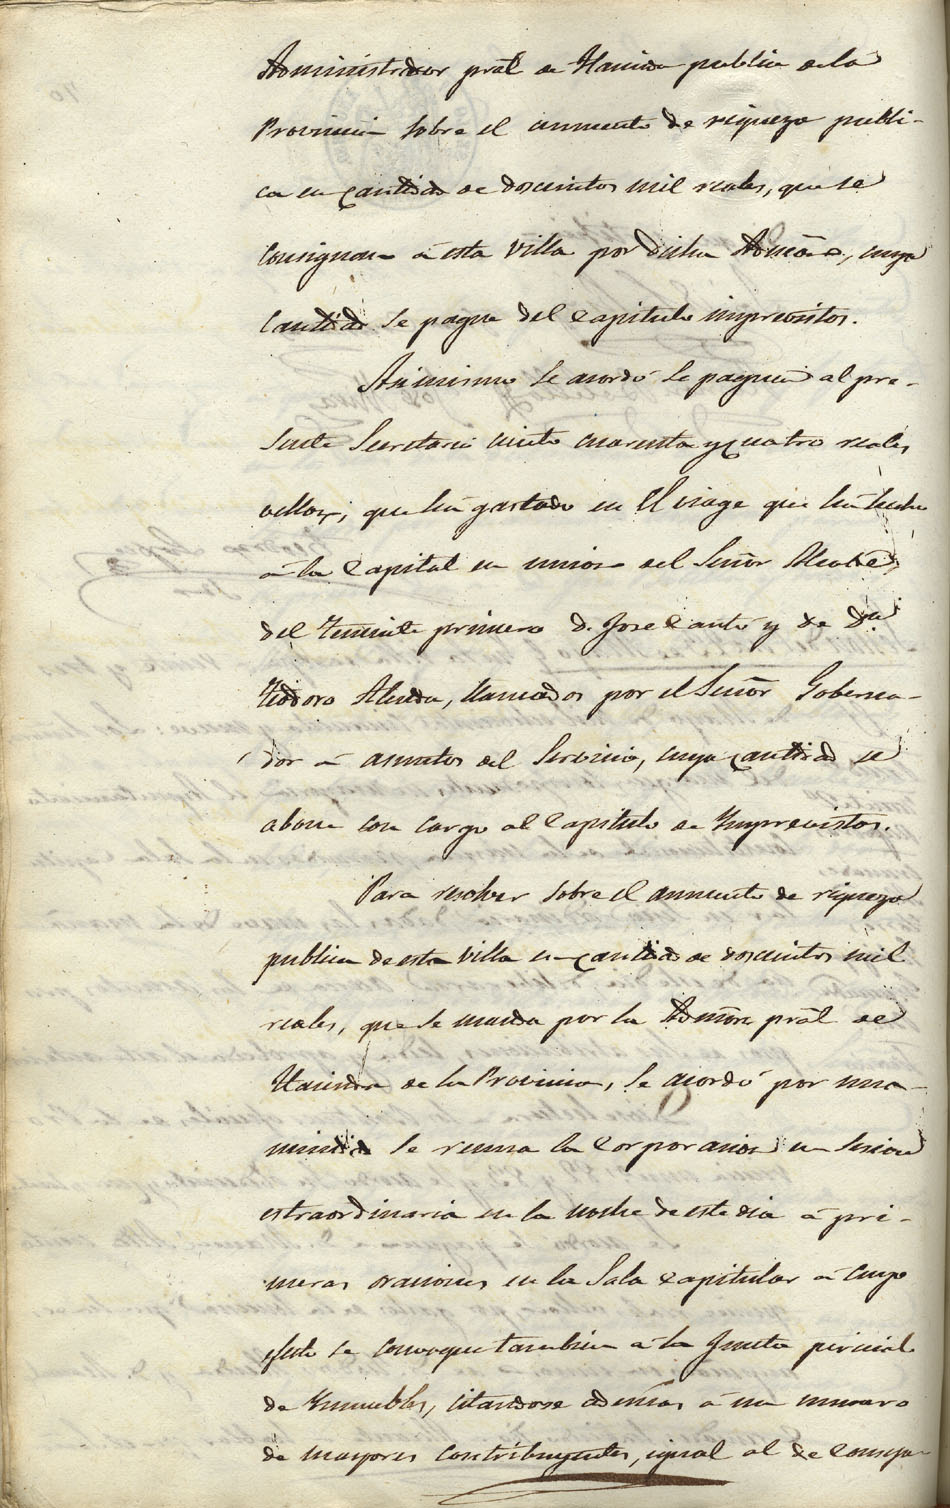 Administrador pral de Hacienda publica de la
Provincia sobre el aumento de riqueza publi-
ca en cantidad de doscientos mil reales, que se
consignan á esta villa por dicha Admon, cuya
cantidad se pague del Capitulo imprevistos.
Asimismo se acordó se paguen al pre-
sente Secretario ciento cuarenta y cuatro reales
vellon, que há gastado en el viage que há hecho
á la Capital en union del Señor Alcalde,
del Teniente primero D. Jose Cantó y de Dn
Teodoro Alenda, llamados por el Señor Goberna-
dor á asuntos del Servicio, cuya cantidad se
abone con cargo al Capitulo de Imprevistos.
Para resolver sobre el aumento de riqueza
publica de esta villa en cantidad de doscientos mil
reales, que se manda por la Admon pral de
Hacienda de la Provincia, se acordó por una-
nimidad se reuna la Corporacion en sesion
estraordinaria en la noche de este dia á pri-
meras oraciones en la Sala Capitular á cuyo
efecto se convoque tambien á la Junta pericial
de Inmuebles, citandose ademas á un numero
de mayores contribuyentes, igual al de Conceja-